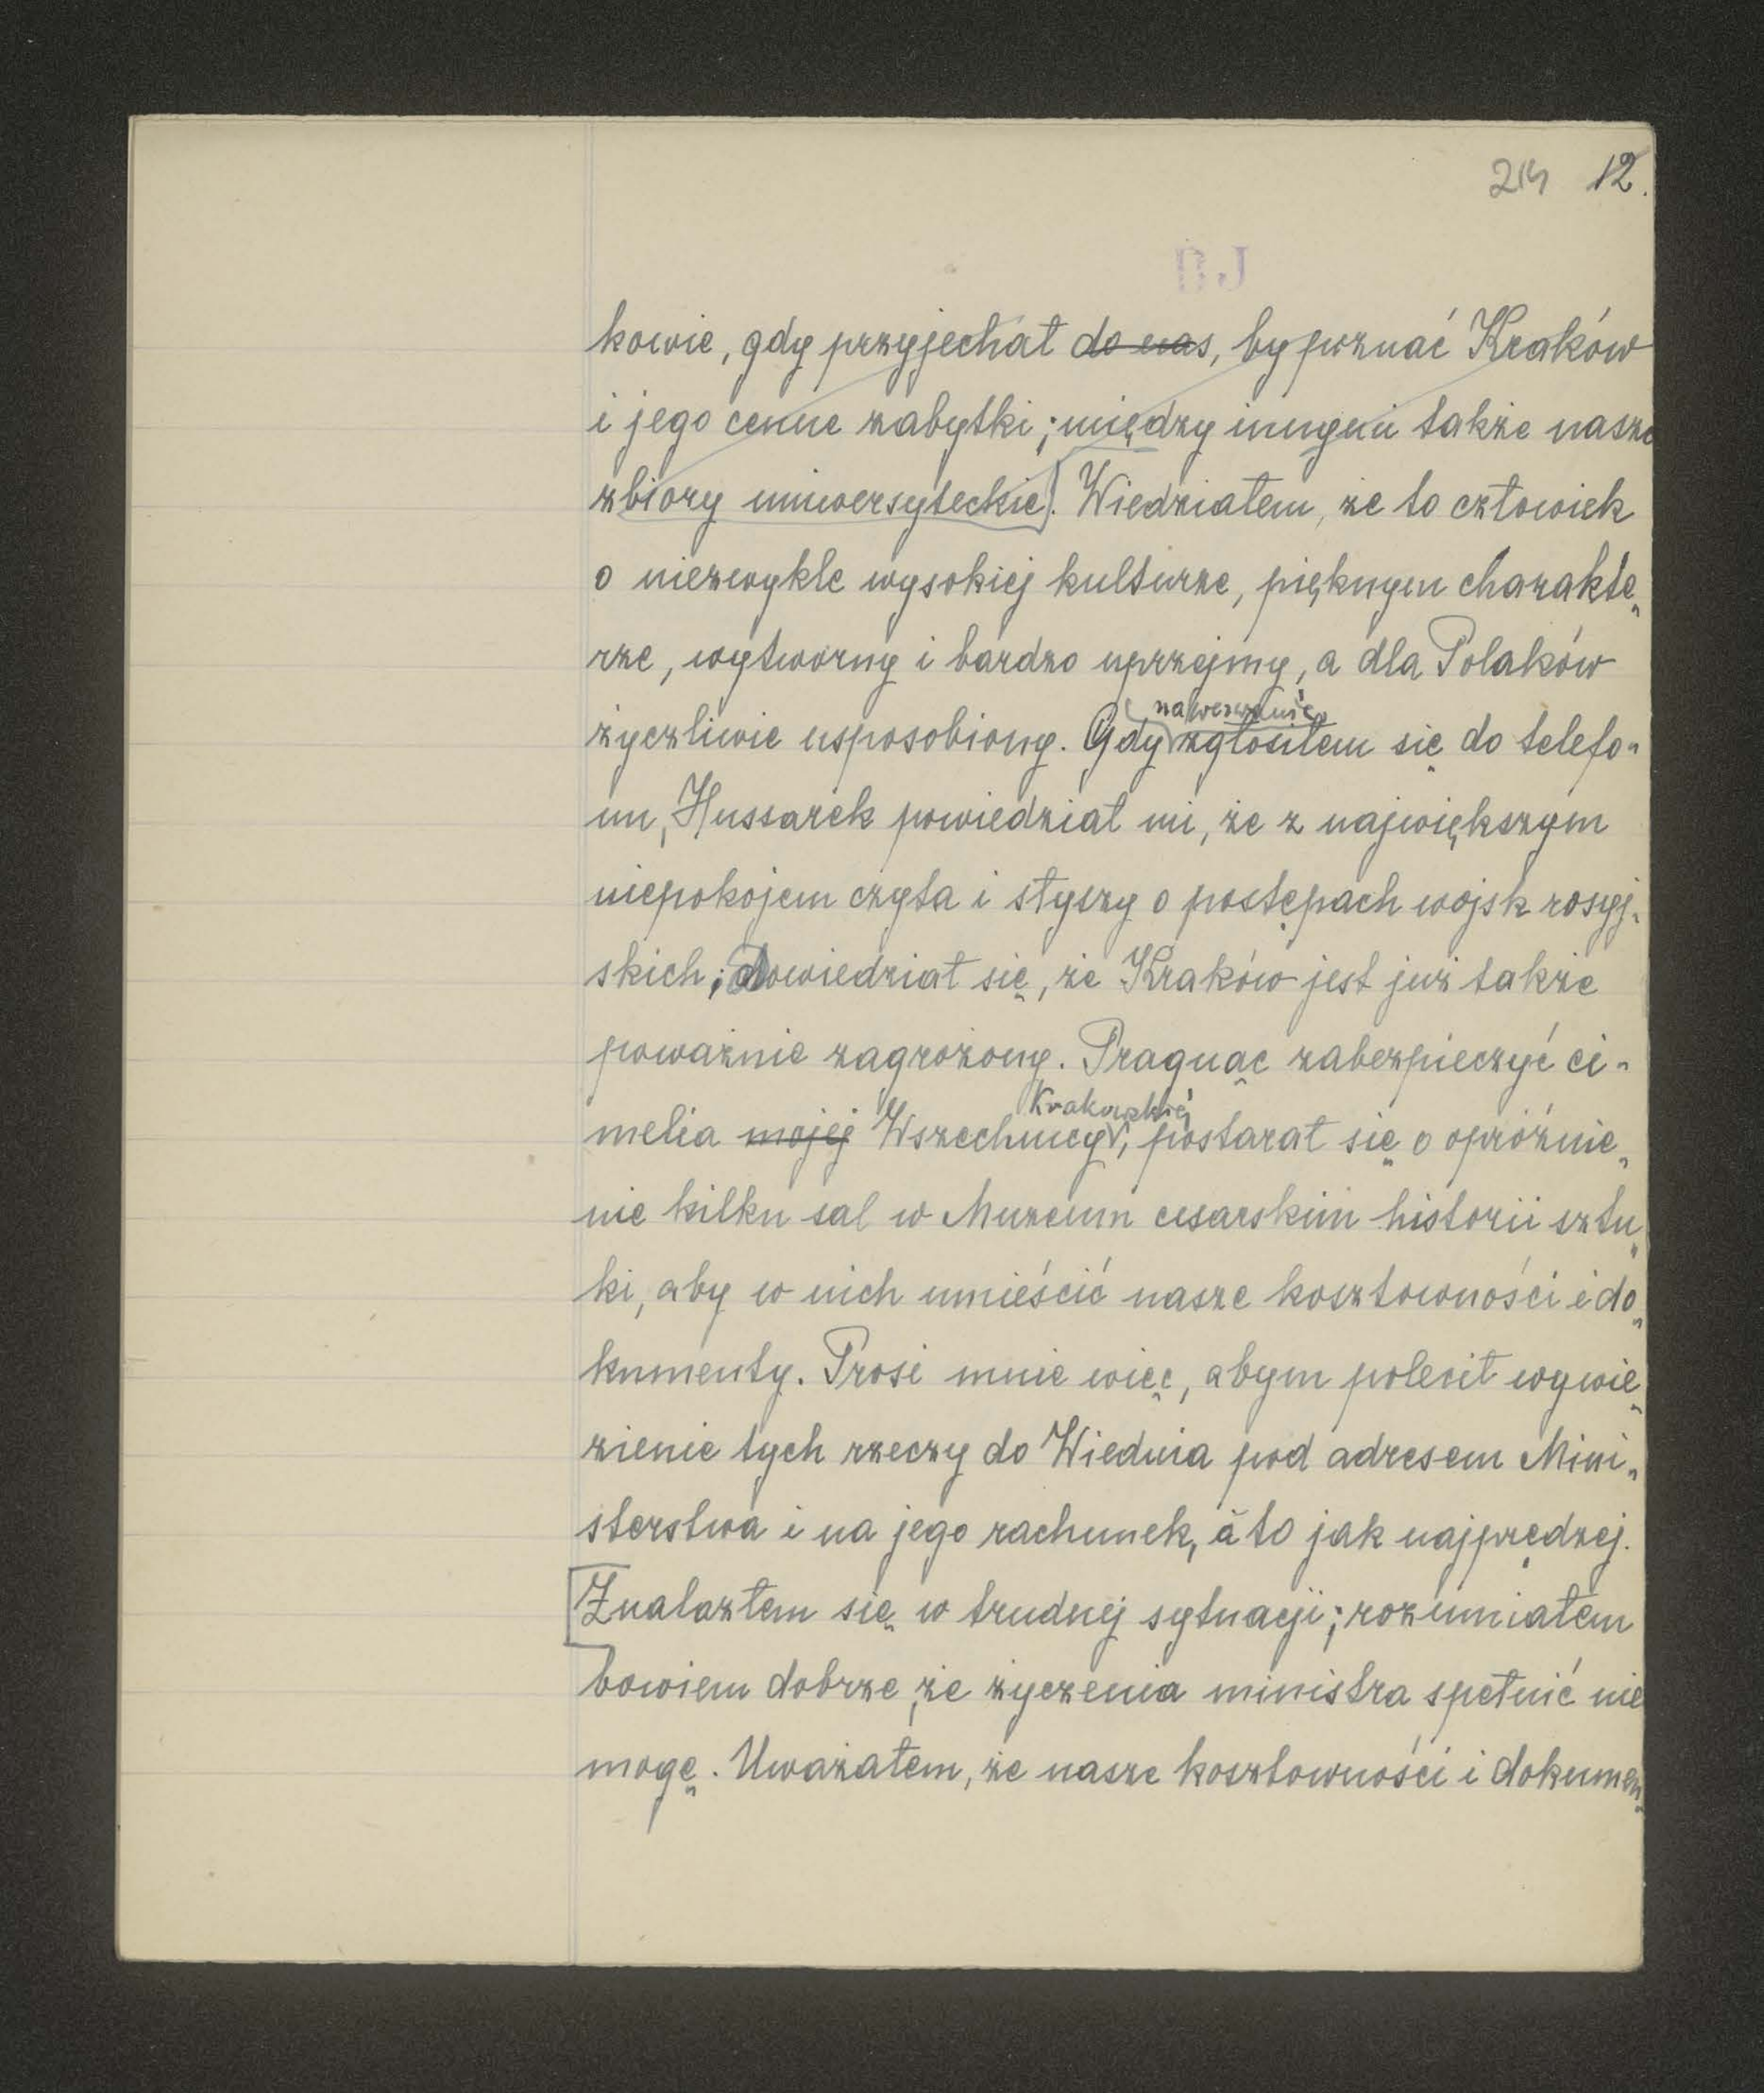 214 12.
kowie, gdy przyjechał do nas, by poznać Kraków
i jego cenne zabytki; między innymi także nasze
zbiory uniwersyteckie]. Wiedziałem, że to człowiek
o niezwykle wysokiej kulturze, pięknym charakte„
rze, wytworny i bardzo uprzejmy, a dla Polaków
na wezwanie
życzliwie usposobiony. Gdy zgłosiłem się do telefo„
nu, Hussarek powiedział mi, że z największym
niepokojem czyta i słyszy o postępach wojsk rosyj„
skich; dowiedział się, że Kraków jest już także
poważnie zagrożony. Pragnąc zabezpieczyć ci„
Krakowskiej
melia mojej Wszechnicy, postarał się o opróżnie„
nie kilku sal w Muzeum cesarskim historii sztu„
ki, aby w nich umieścić nasze kosztowności i do„
kumenty. Prosi mnie więc, abym polecił wywie„
zienie tych rzeczy do Wiednia pod adresem Mini„
sterstwa i na jego rachunek, a to jak najprędzej.
[Znalazłem się w trudnej sytuacji; rozumiałem
bowiem dobrze, że życzenia ministra spełnić nie
mogę. Uważałem, że nasze kosztowności i dokumen„